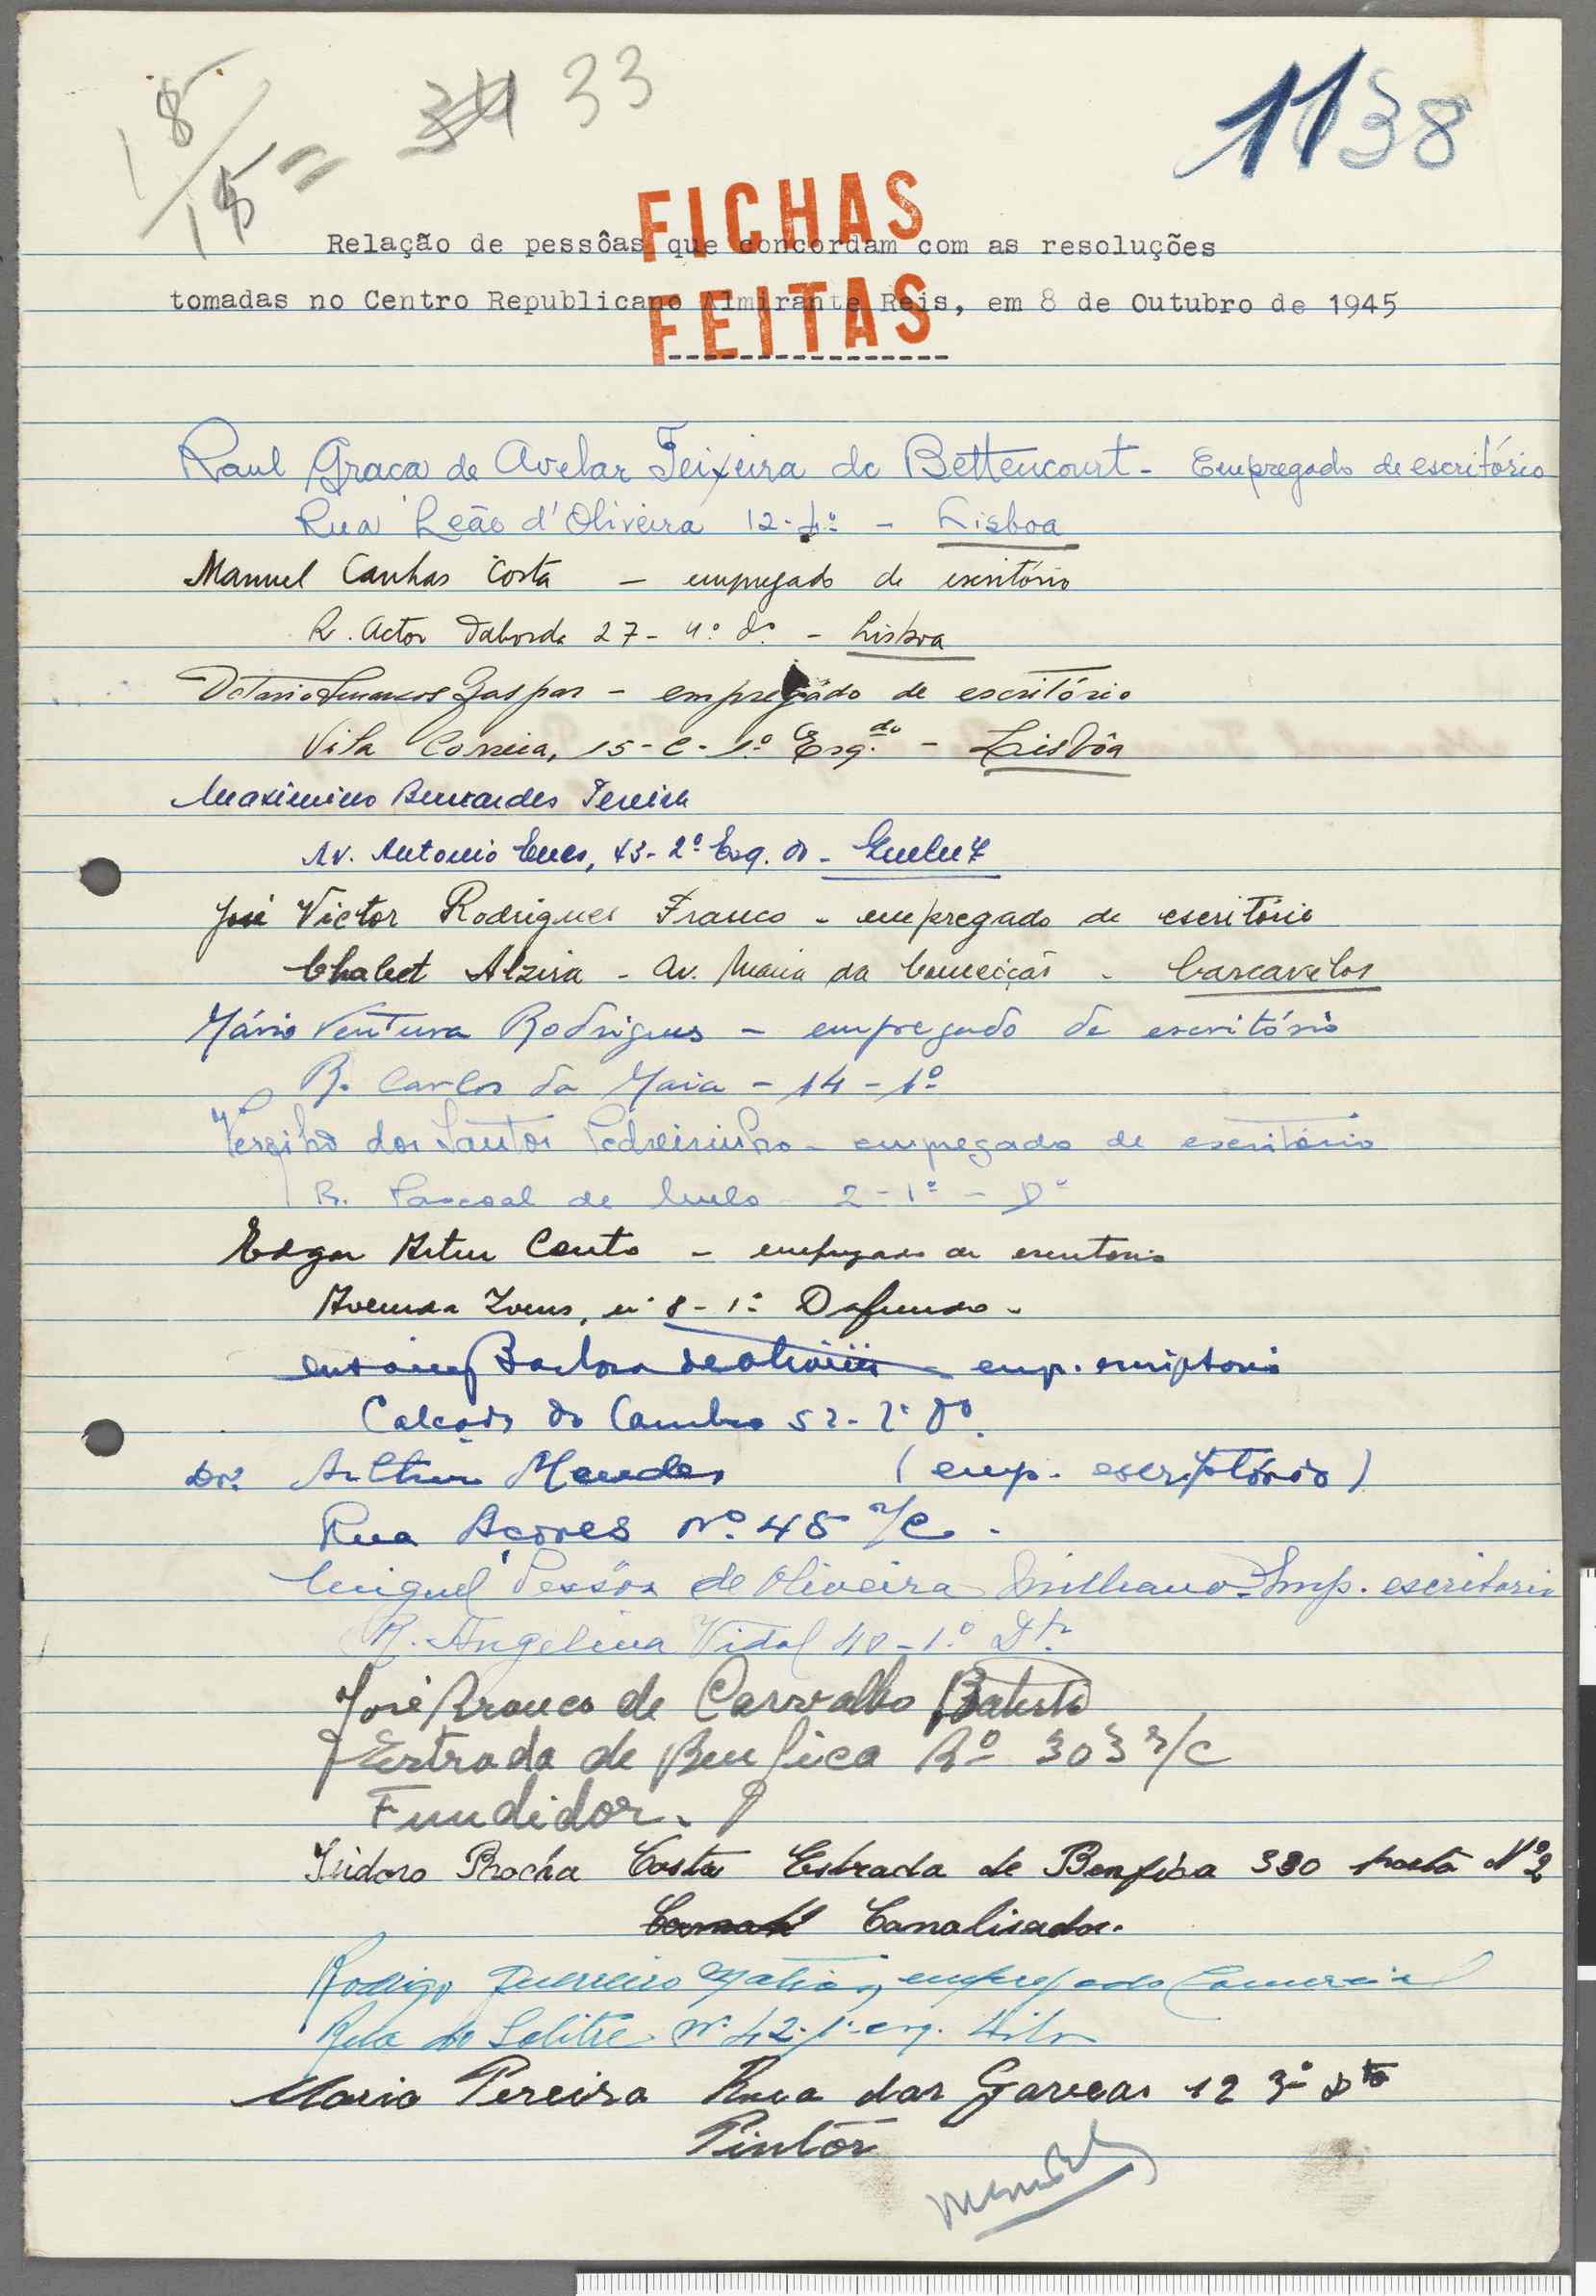 18/15 = 34 33
1138
FICHAS
Relação de pessôas que concordam com as resoluções
FEITAS
tomadas no Centro Republicano Almirante Reis, em 8 de Outubro de 1945
Raul Graça de Avelar Teixeira de Bettencourt - Empregado de escritório
Rua Leão d'Oliveira 12-4º - Lisboa
Manuel Canhas Costa - empregado de escritório
R. Actor Taborda 27 - 4º dº - Lisboa
Gaspar - empregado de escritório
Vila Correia, 15-C-1º Esq.do - Lisbôa
Maximino Bernardes Pereira
Av. Antonio Enes, 43-2º Esq.do - Queluz
José Victor Rodrigues Franco - empregado de escritório
Chalet Alzira - Av. Maria da Conceição - Carcavelos
Mário Ventura Rodrigues - empregado de escritório
R. Carlos da Maia - 14 - 1º
Vergilio dos Santos Pedreirinho - empregado de escritório
R. Pascoal de Melo - 2 - 1º - Dº
Edgar Artur Couto - empregado de escritorio
Avenida Ivens, nº 8 - 1º Dafundo -
Barbosa de Oliveira - emp. escriptorio
Calçada do Combro 52-2º Dº.
Dr. Arthur Mendes (emp. escriptório)
Rua Açores Nº 45 r/c -
Miguel Pessôa de Oliveira Milhano - Emp. escritorio
R. Angelina Vidal 40-1.º Dtº
José Franco de Carvalho Batista
Estrada de Benfica Nº 303 r/c
Fundidor.
Isidoro Rocha Costa Estrada de Benfica 330 porta Nº 2
Canalisador.
Rodrigo Guerreiro Matias, empregado Comercial
Rua do Salitre Nº 42-1º esq.
Mario Pereira Rua das Gaveas 12 3º Dto
Pintôr